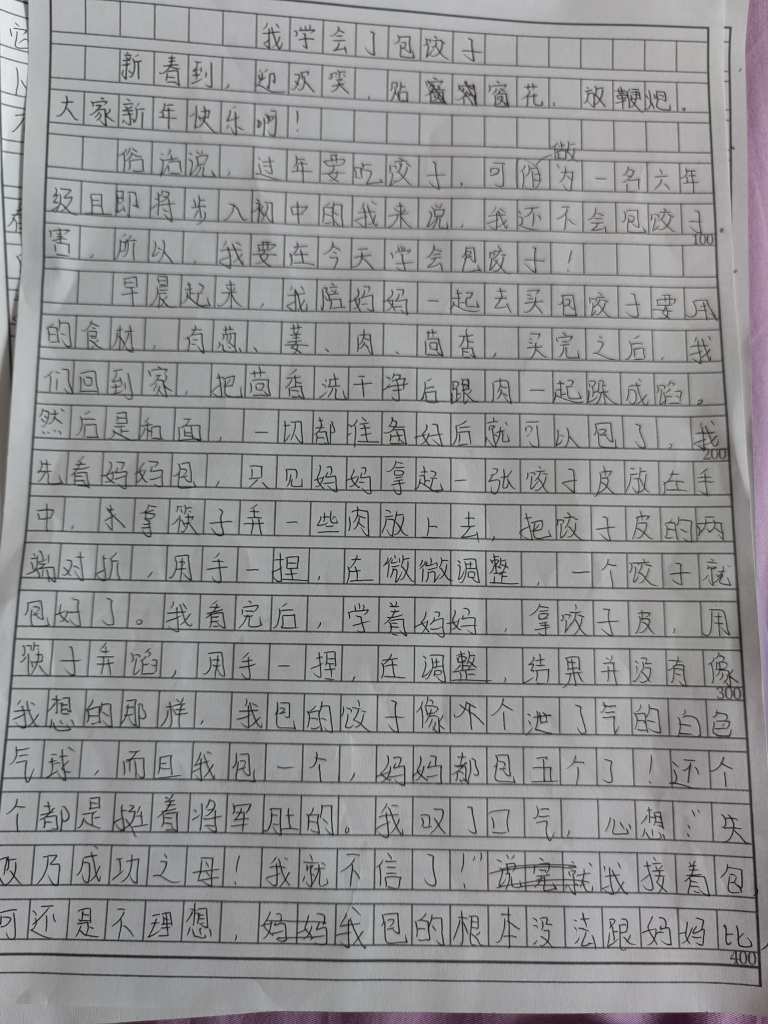 我学会了包饺子
新看到，迎欢笑，贴窗窗花，放鞭炮。
大家新年快乐啊！
做
俗话说，过年要吃饺子，可作为一名六年
级且即将步入初中的我来说，我还不会包饺子
100
害，所以，我要在今天学会包饺子！
早晨起来，我陪妈妈一起去买包饺子要用
的食材，有葱、姜、肉、茴香，买完之后，我
们回到家，把茴香洗干净后跟肉一起跺成馅。
然后是和面，一切都准备好后就可以包了，我
200
先看妈妈包，只见妈妈拿起一张饺子皮放在手
中，拿筷子弄一些肉放上去，把饺子皮的两
端对折，用手一捏，在微微调整，一个饺子就
包好了。我看完后，学着妈妈，拿饺子皮，用
筷子弄馅，用手一捏，在调整，结果并没有像
300
我想的那样，我包的饺子像个泄了气的白色
气球，而且我包一个，妈妈都包五个了！还个
个都是挺着将军肚的。我叹了口气，心想：“失
败乃成功之母！我就不信了！”说完就我接着包
可还是不理想，妈妈我包的根本没法跟妈妈比，
400